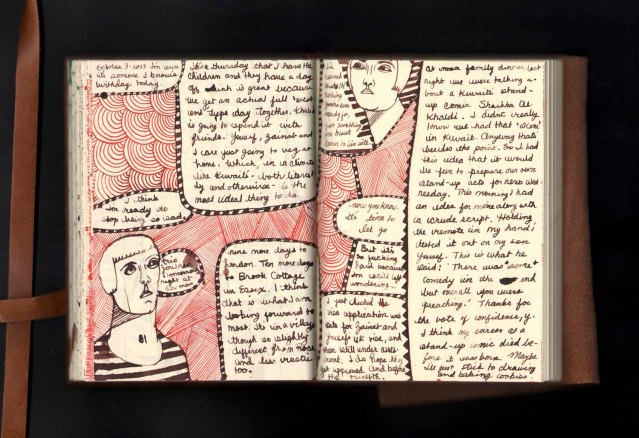 October 3-2013 I'm sure
it's someone I know's
birthday today.
It's a thursday that I have the
children and they have a day
off which is great because
we get an actual full rest
day together. Khalid
is going to spend it with
friends. Yousif, Zainab and
I are just going to veg at
home. Which, in a climate
like Kuwait's - both literal-
ly and otherwise - is the
most ideal thing to do
I think
I'm ready to
stop being so sad.
tomorrow
night at
nine more days to
London. Ten more days
to Brook Cottage
in Essex. I think
that is what I am
looking forward to
most. It's in a village
though so slightly
different from
and less rustic
too.
learn to live with
now you know
it's time to
let go
But it's
so fucking
hard because
I'm still
wondering.
I just checked the
visa application we
made for Zainab and
Yousif's UK visa, and
their still under assess-
ment, I do hope they
get approved and before
the twelfth.
At mesa family dinner last
night we were talking a-
bout a Kuwaiti stand-
up comic Shaikha Al
Khaldi. I didn't really
know we had that 'scene'
in Kuwait. Anyway that's
besides the point. So I had
this idea that it would
be fun to prepare our own
stand-up acts for next Wed-
nesday. This morning I had
an idea for mine along with
a crude script. Holding
the remote in my hand I
tested it out on my son
Yousef. This is what he
said: 'There was "some"
comedy in the end
but overall you were
preaching.' Thanks for
the vote of confidence, Y.
I think my career as a
stand-up comic died be-
fore it was born. Maybe
I'll just stick to drawing
and baking cookies.